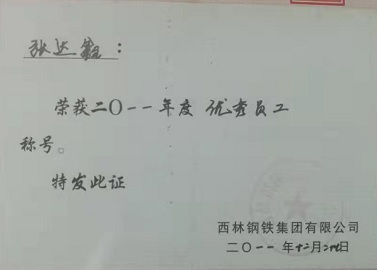 张达
荣获二〇一一年度 优秀员工
称号。
特发此证
西林钢铁集团有限公司
二〇一一 年十二月